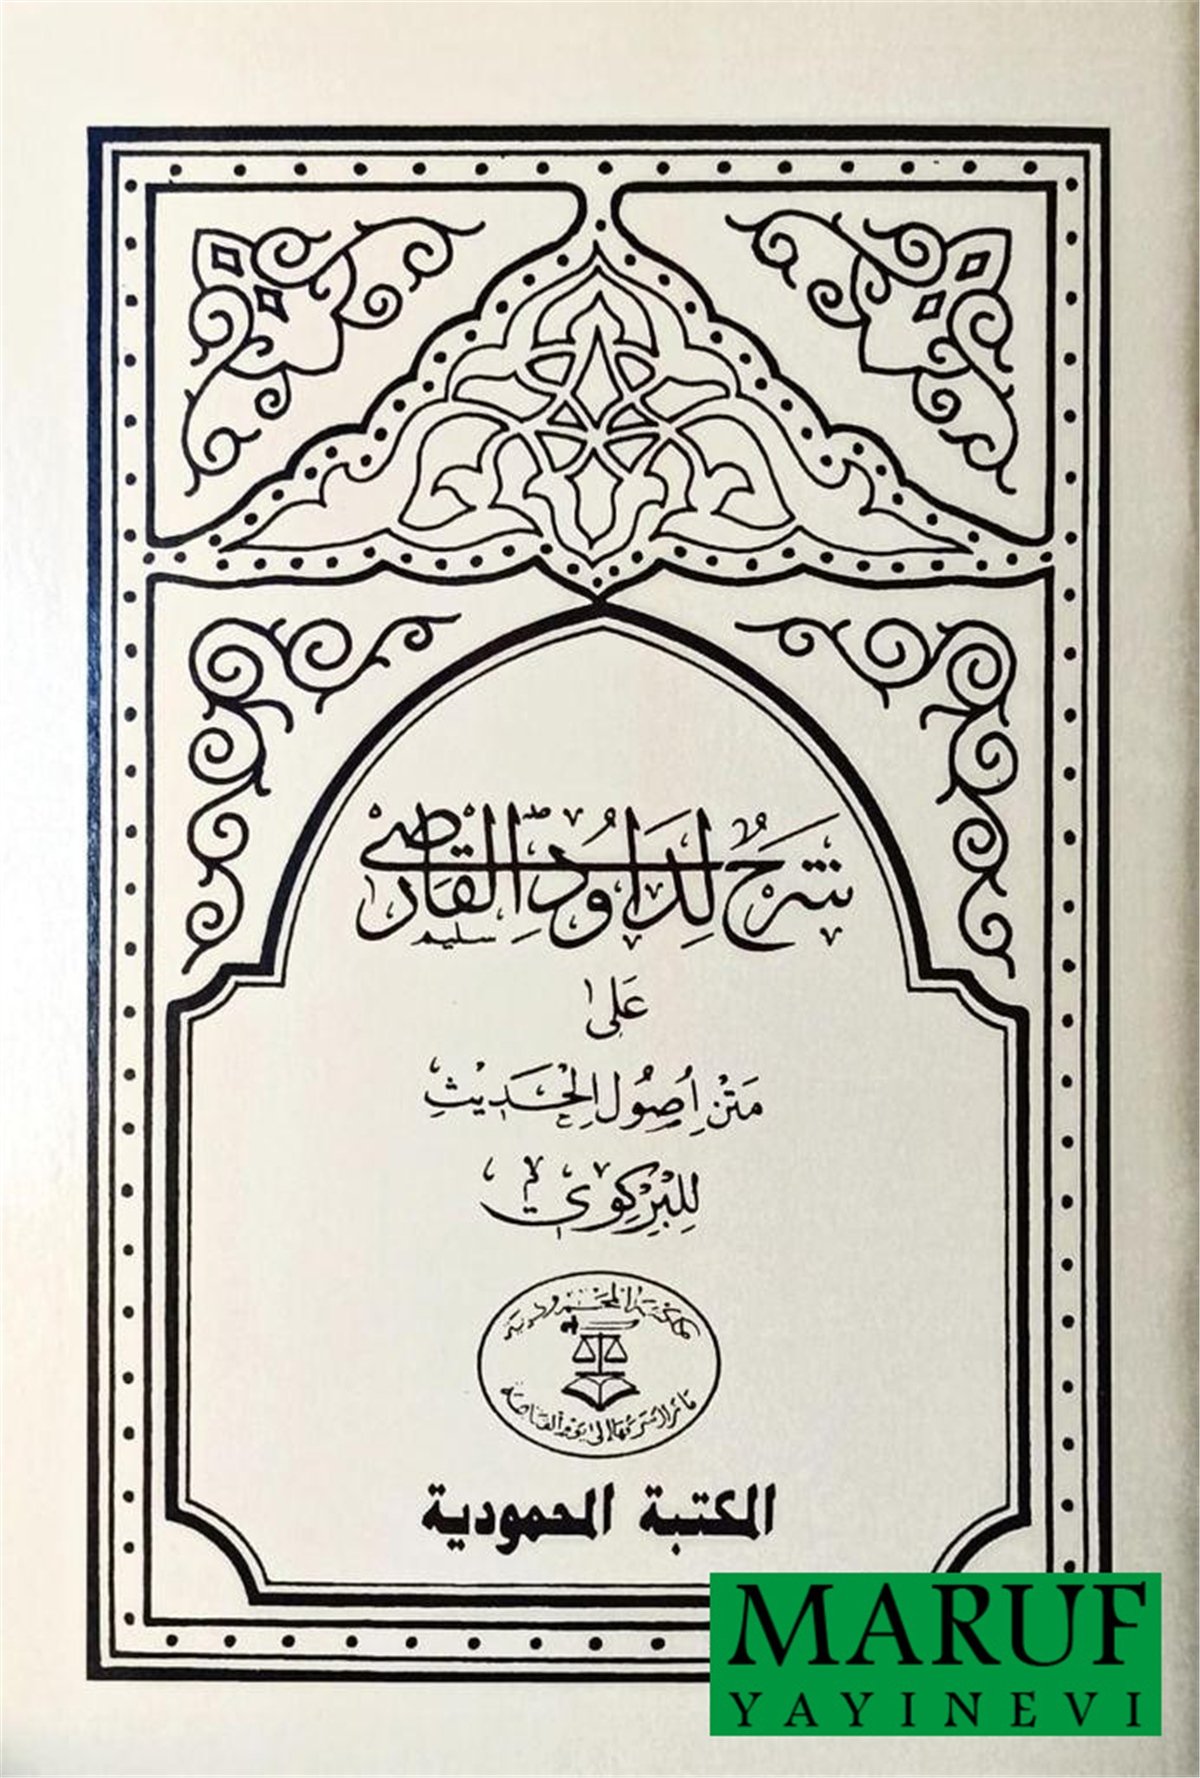 شَرْحٌ لِدَاوُدَ الْقَارْصِي
سليم
عَلٰى
مَتْنِ اُصُولِ الْحَدِيثِ
لِلْبِرْكِوِيِّ
مكتبة المحمودية
المكتبة المحمودية
MARUF
YAYINEVI